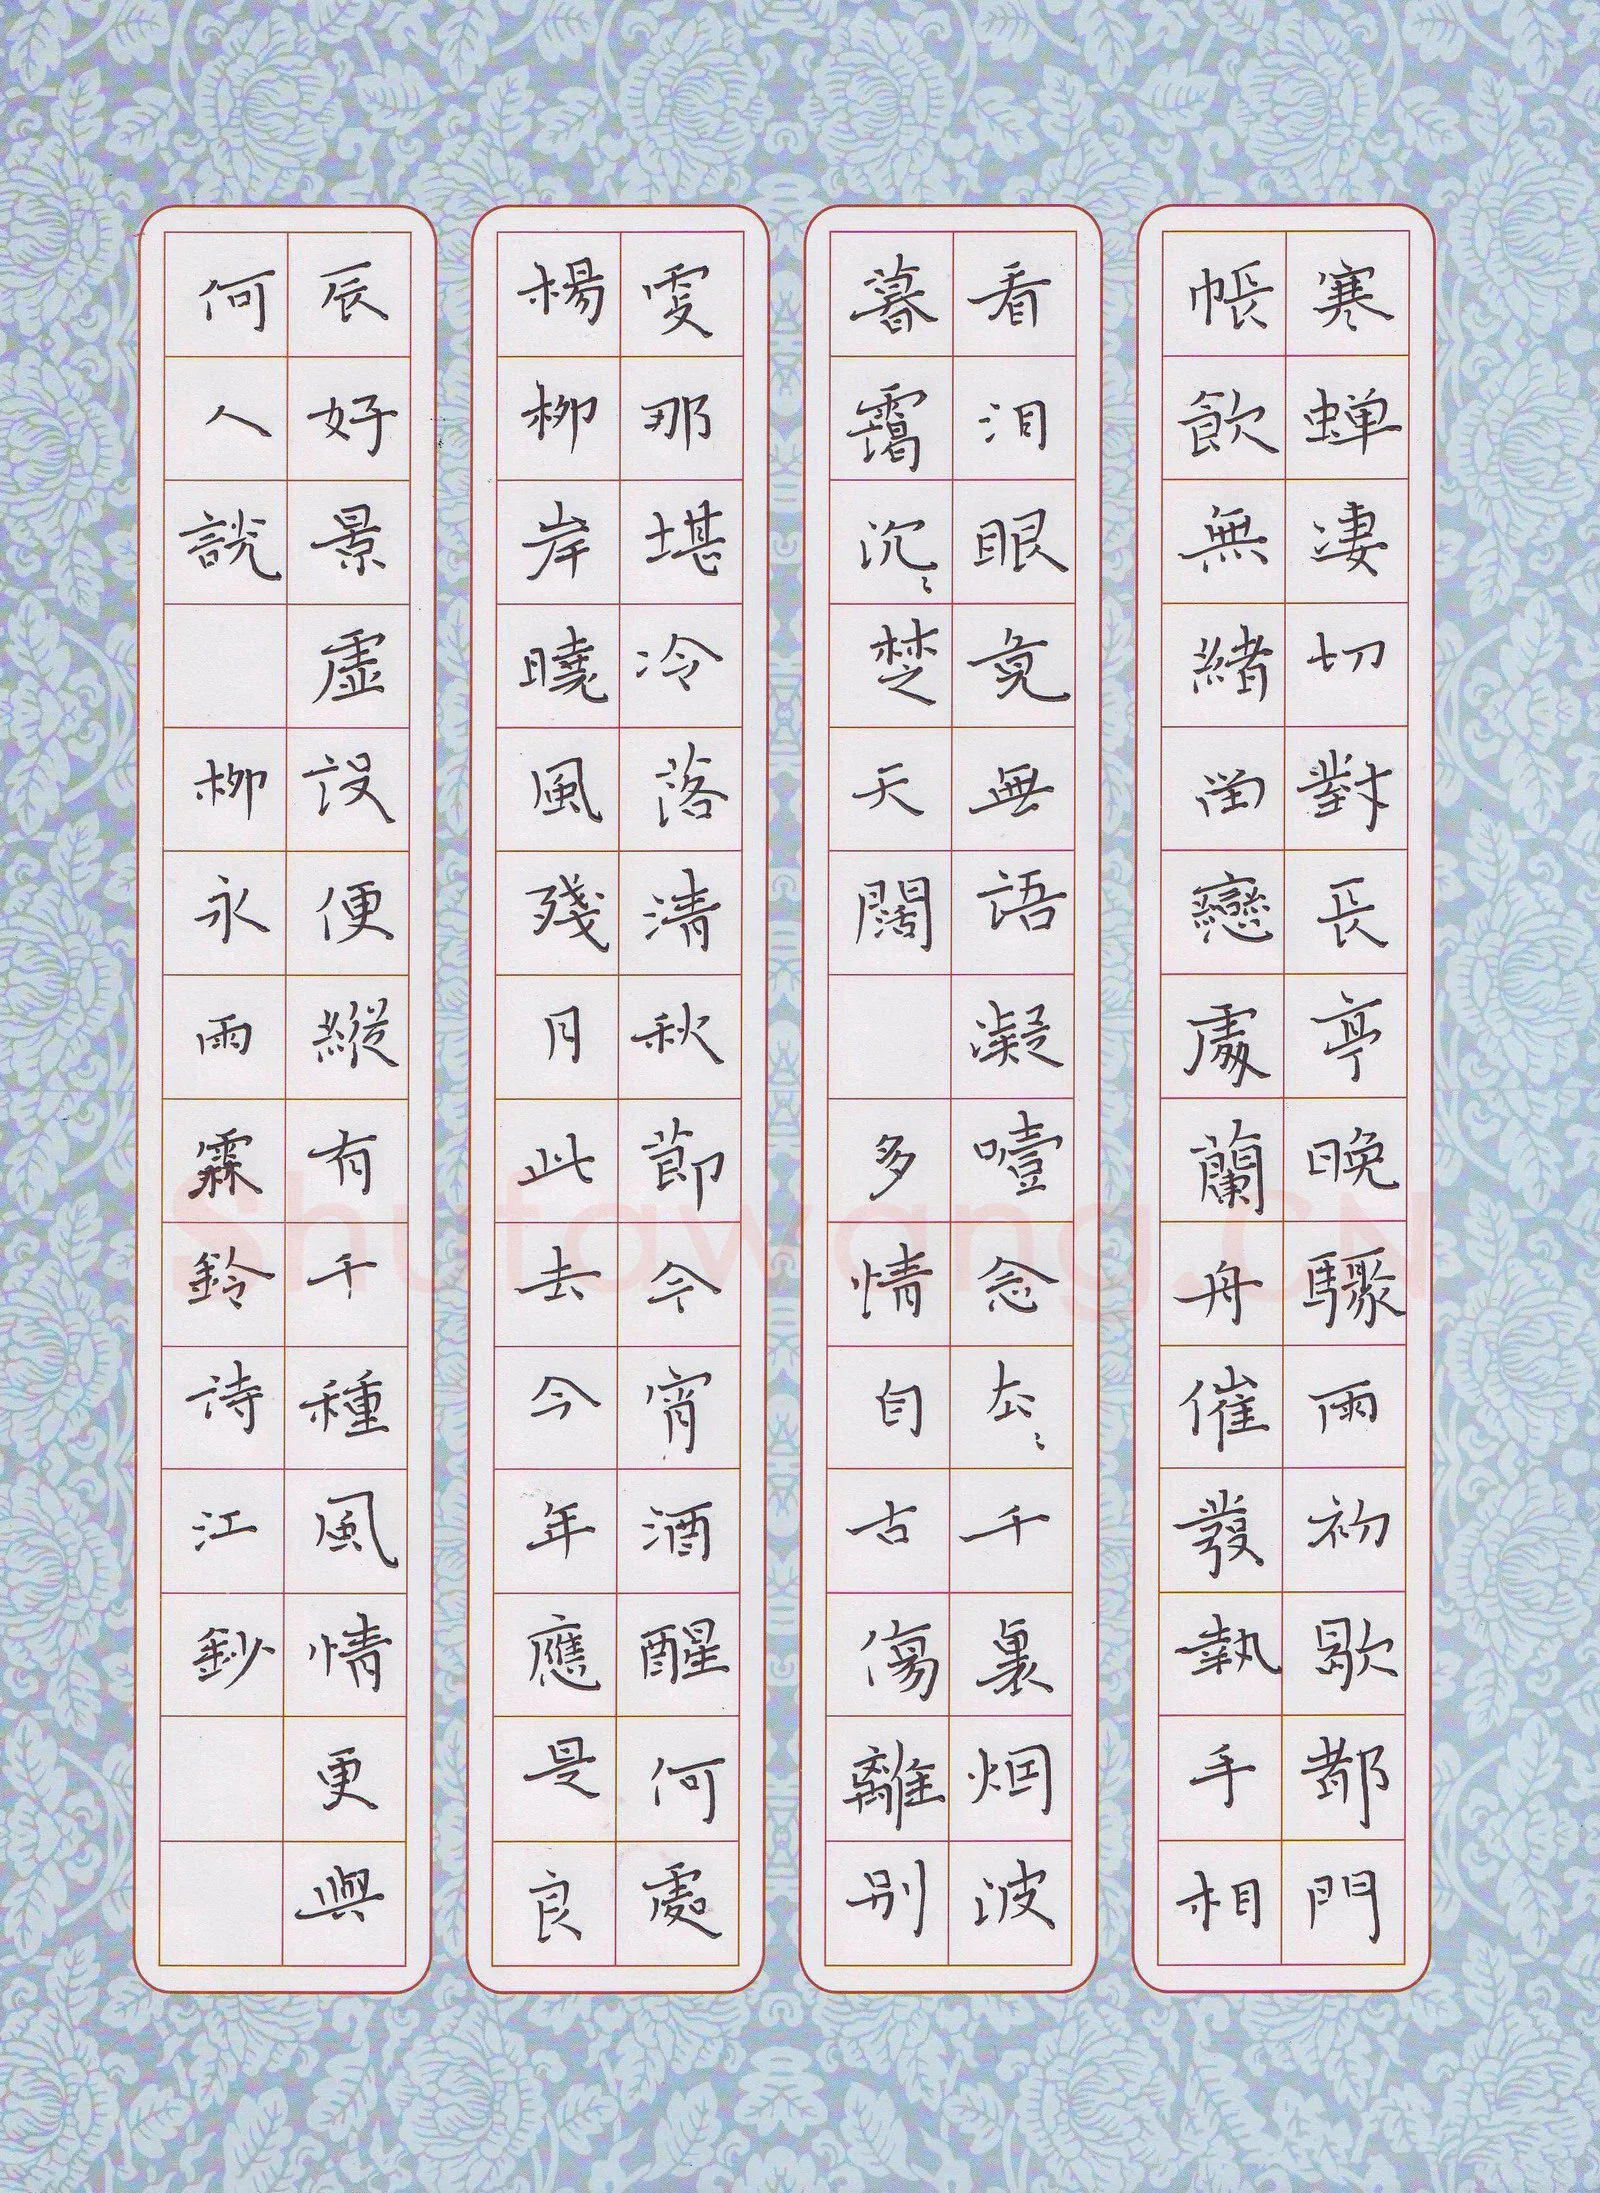 寒蝉淒切對長亭晚驟雨初歇都門
帳飲無緒留戀處蘭舟催發執手相
看泪眼竟無語凝噎念去〻千裏烟波
暮靄沉〻楚天闊 多情自古傷離别
雯那堪冷落清秋節今宵酒醒何處
楊柳岸曉風殘月此去今年應是良
辰好景虛設便縱有千種風情更與
何人説 柳永雨霖鈴詩江鈔
Shufawang.CN